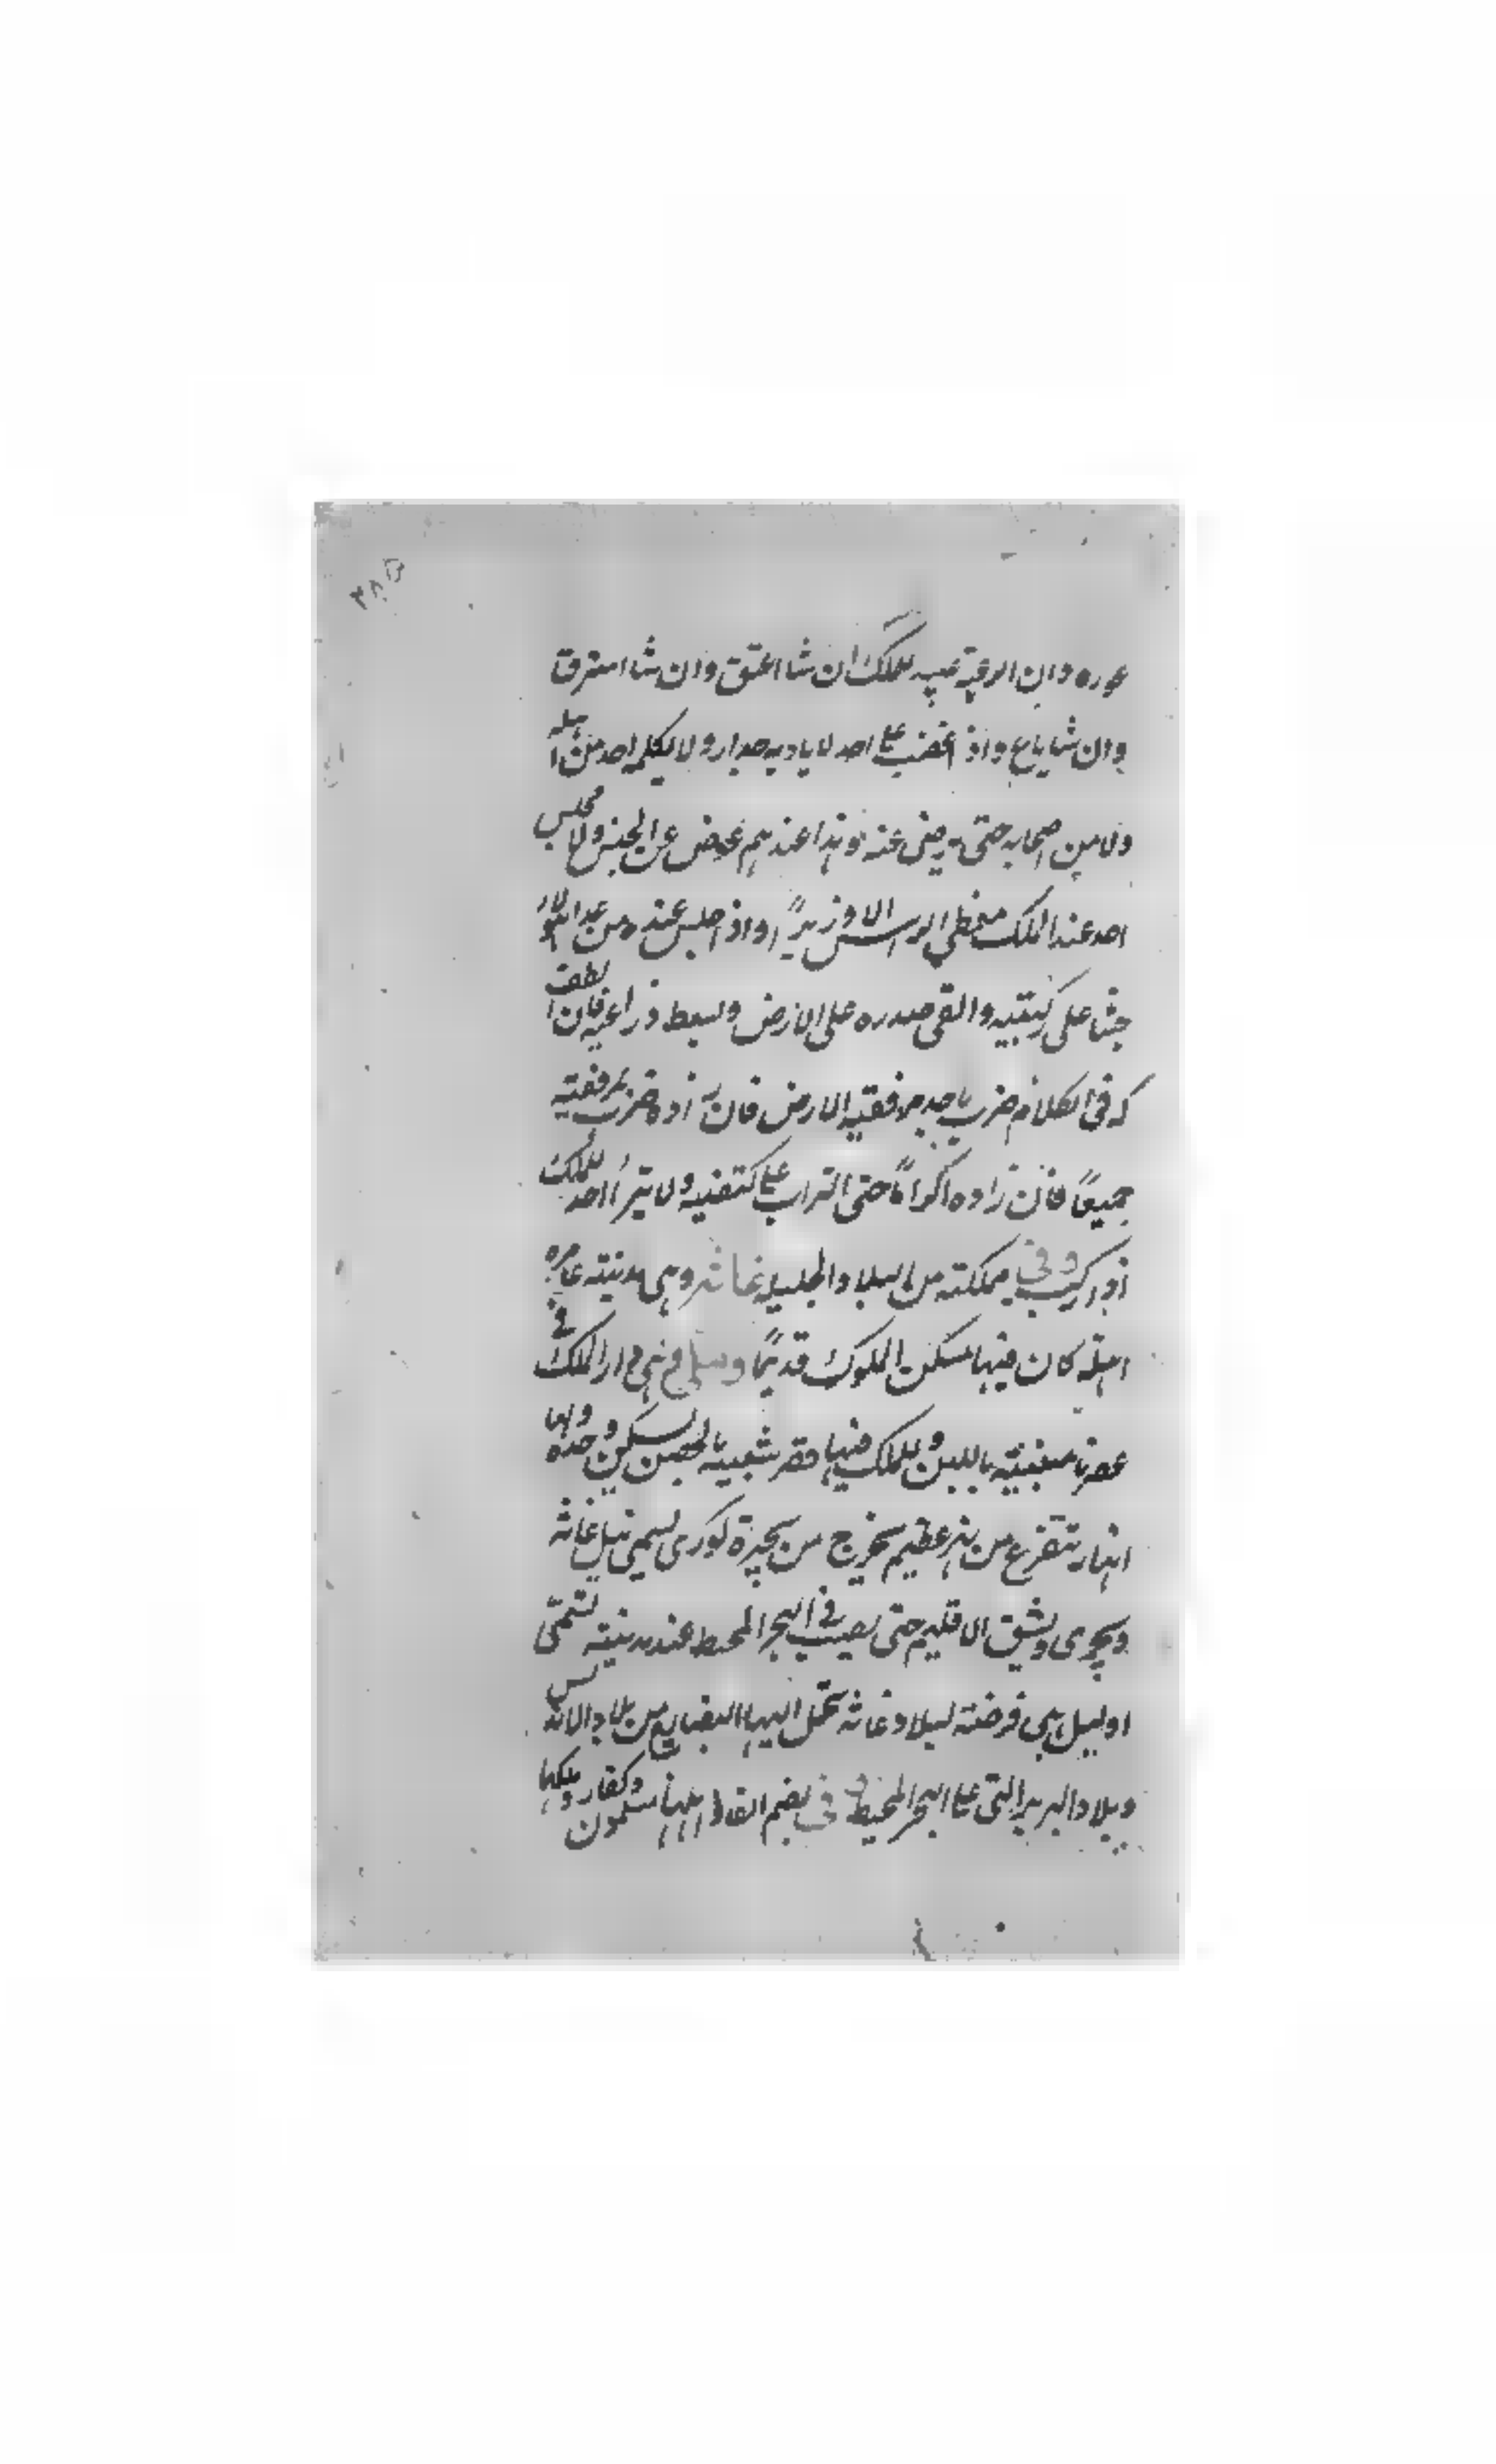 ۳۸۵
عوره وان الرعية عبيد للملك ان شا اعتق وان شا استرق
وان شا باع واذ اغضب على احد لا ياديه جدار ولا يكلمه احد من اهله
ولا من اصحابه حتى يرضى عنه وهذا عندهم عوض عن الحبس ولا يجلس
احد عند الملك مغطى الراس الا وزيرًا واذ اجلس عنده من عدا هولا
جثا على ركبتيه والقى صدره على الارض وبسط ذراعيه فان الطف
له فى الكلام ضرب باحد مرفقيه الارض فان زاده ضرب بمرفقيه
جميعًا فان زاده اكرامًا حتى التراب على كتفيه ولا يترأ احد للملك
اذ اركب وفى مملكته من البلاد الجليله غانه وهى مدينته عامره
اهله كان فيها مسكن الملوك قديمًا وهى دار الملك فى
عصرنا مبنيته باللبن وللملك فيها قصر شبيه بالحصن يسكن وحده ولها
انهار تتفرع من نهر عظيم يخرج من بحيرة كورى يسمى نيل غانه
ويجرى ويشق الاقليم حتى يصب فى البحر المحيط عند مدينته تسمى
اوليل هى فرضته لبلاد غانه تحمل اليها البضايع من بلاد الاندلس
وبلاد البربر التى على البحر المحيط فى بضم القاف اهلها مسلمون وكفار وملكها